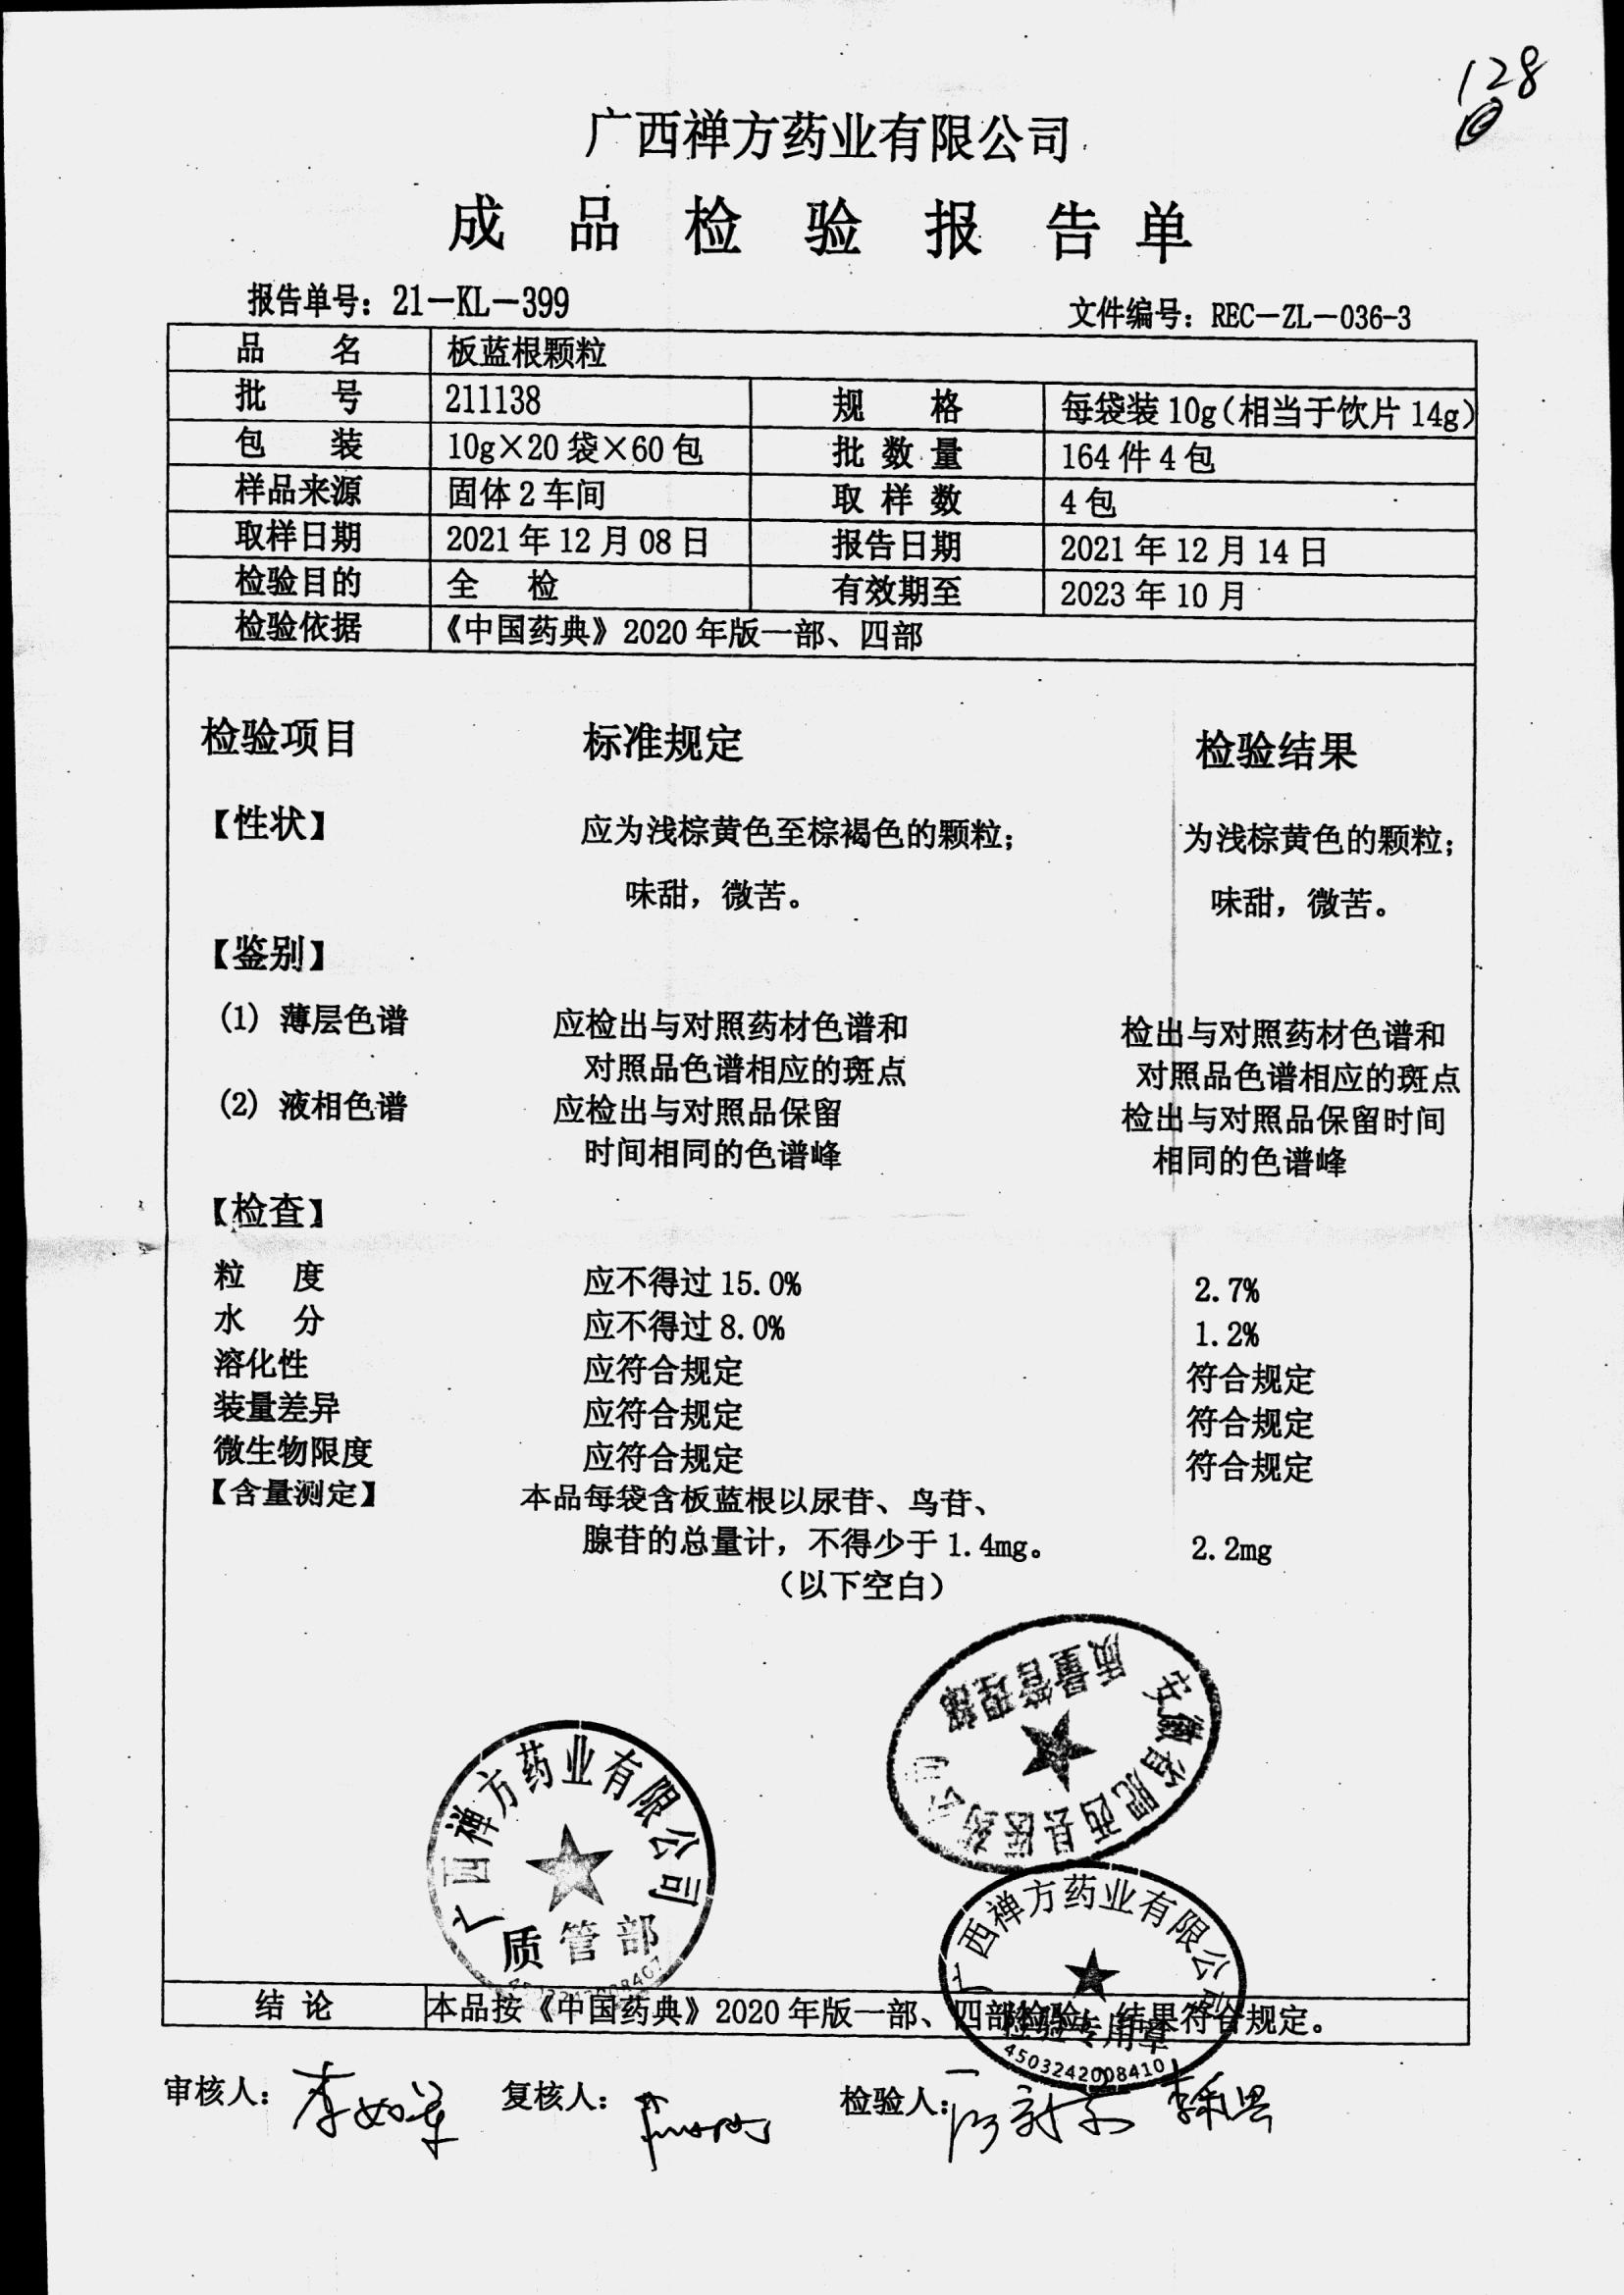 128
广西禅方药业有限公司
成品检验报告单
报告单号：21－KL－399 文件编号：REC－ZL－036-3
品名 板蓝根颗粒
批号 211138 规格 每袋装10g(相当于饮片14g)
包装 10g×20袋×60包 批数量 164件4包
样品来源 固体2车间 取样数 4包
取样日期 2021年12月08日 报告日期 2021年12月14日
检验目的 全检 有效期至 2023年10月
检验依据 《中国药典》2020年版一部、四部
检验项目 标准规定 检验结果
【性状】 应为浅棕黄色至棕褐色的颗粒； 为浅棕黄色的颗粒；
味甜，微苦。 味甜，微苦。
【鉴别】
(1) 薄层色谱 应检出与对照药材色谱和 检出与对照药材色谱和
对照品色谱相应的斑点 对照品色谱相应的斑点
(2) 液相色谱 应检出与对照品保留 检出与对照品保留时间
时间相同的色谱峰 相同的色谱峰
【检查】
粒度 应不得过15.0% 2.7%
水分 应不得过8.0% 1.2%
溶化性 应符合规定 符合规定
装量差异 应符合规定 符合规定
微生物限度 应符合规定 符合规定
【含量测定】 本品每袋含板蓝根以尿苷、鸟苷、
腺苷的总量计，不得少于1.4mg。 2.2mg
（以下空白）
安徽省肥西县医药公司
质量管理部
广西禅方药业有限公司
质管部
广西禅方药业有限公司
检验专用章
4503242008410
结论 本品按《中国药典》2020年版一部、四部检验，结果符合规定。
审核人： 复核人： 检验人：